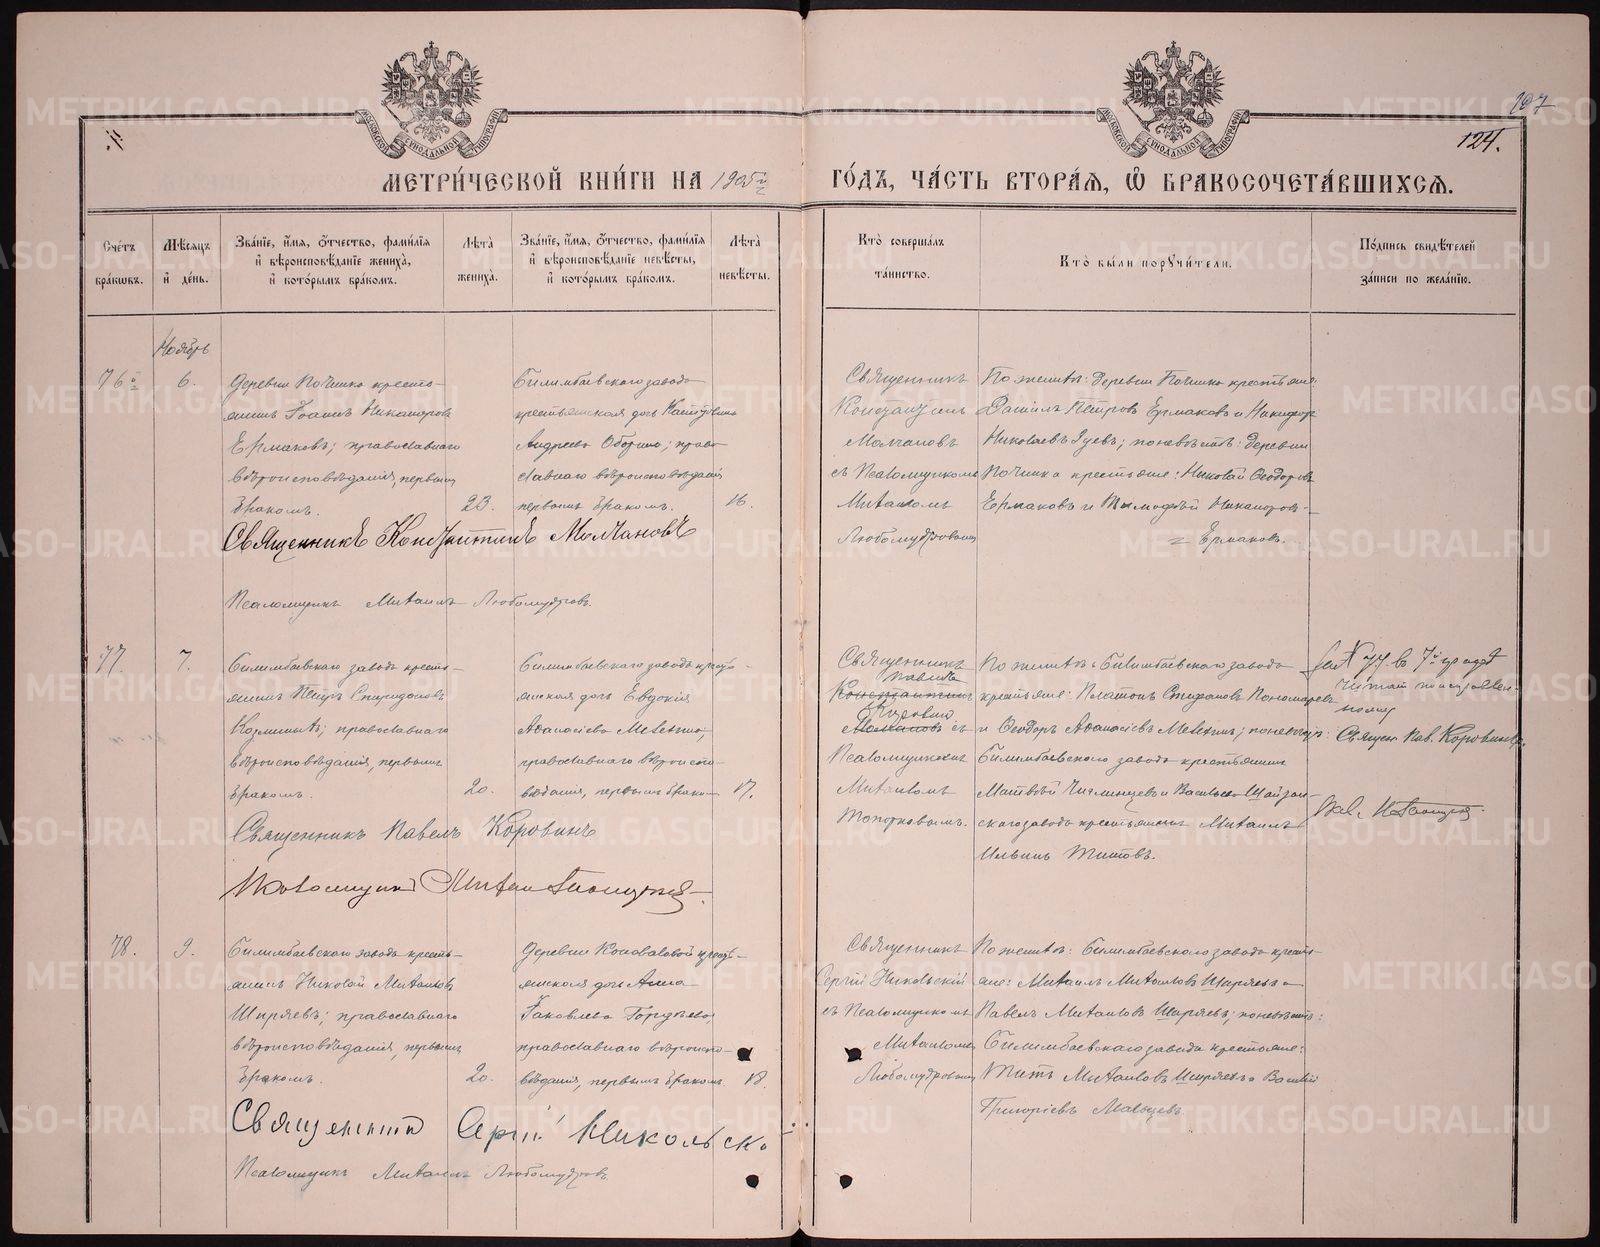 107
124.
МЕТРИ́ЧЕСКОЙ КНИ́ГИ НА 1905й
ГО́ДЪ, ЧА́СТЬ ВТОРА́Я, Ѡ БРАКОСОЧЕТА́ВШИХСЯ.
Сче́тъ бра́кѡвъ.
Мѣ́сяцъ и҆ де́нь.
Зва́нїе, и҆́мя, ѻ҆́тчество, фами́лїя
и҆ вѣроисповѣ́данїе жениха̀,
и҆ кото́рымъ бра́комъ.
Лѣ́та жениха̀.
Зва́нїе, и҆́мя, ѻ҆́тчество, фами́лїя
и҆ вѣроисповѣ́данїе невѣ́сты,
и҆ кото́рымъ бра́комъ.
Лѣ́та невѣ́сты.
Кто̀ соверша́лъ
та́инство.
Кто̀ бы́ли порꙋчи́тели.
По́дпись свидѣ́телей
за́писи по жела́нїю.
Ноябрь
76й
6.
Деревни Починка кресть-
янинъ Іоаннъ Никаноровъ
Ермаковъ; православнаго
вѣроисповѣданія, первымъ
бракомъ.
23.
Билимбаевскаго завода
крестьянская дочь
Андреева ; право
славнаго вѣроисповѣданія
первымъ бракомъ.
16.
Священникъ
Константинъ
Молчановъ
съ Псаломщикомъ
Михаиломъ
Любомудровымъ
По женихѣ: деревни Починка крестьяне:
Даніилъ Петровъ Ермаковъ и Никифоръ
Николаевъ Зуевъ; по невѣстѣ: деревни
Починка крестьяне: Николай Ѳеодоровъ
Ермаковъ и Тимофей Никаноровъ
Ермаковъ.
Священникъ Константинъ Молчановъ
Псаломщикъ Михаилъ Любомудровъ.
77.
7.
Билимбаевскаго завода кресть-
янинъ Петръ Спиридоновъ
Козминыхъ; православнаго
вѣроисповѣданія, первымъ
бракомъ.
20.
Билимбаевскаго завода кресть-
янская дочь Евдокія
Аѳанасіева Мелехина,
православнаго вѣроиспо-
вѣданія, первымъ бракомъ
17.
Священникъ
Павелъ
Константинъ
Коровинъ
Молчановъ съ
Псаломщикомъ
Михаиломъ
Топорковымъ.
По женихѣ: Билимбаевскаго завода
крестьяне: Платонъ Стефановъ Пономаревъ
и Ѳеодоръ Аѳанасіевъ Мелехинъ; по невѣстѣ:
Билимбаевскаго завода крестьянинъ
Матвѣй и Васильево-Шайтан-
скаго завода крестьянинъ Михаилъ
Ильинъ Титовъ.
№ 77 в 7й графѣ
читать по исправлен-
ному
Священ. Пав. Коровинъ.
Священникъ Павелъ Коровинъ
Псаломщикъ Михаил
78.
9.
Билимбаевскаго завода кресть-
янинъ Николай Михаиловъ
Ширяевъ; православнаго
вѣроисповѣданія, первымъ
бракомъ.
20.
Деревни Коноваловой кресть-
янская дочь Анна
Іаковлева Гордѣева,
православнаго вѣроиспо-
вѣданія, первымъ бракомъ.
18.
Священникъ
Сергій Никольскій
съ Псаломщикомъ
Михаиломъ
Любомудровымъ
По женихѣ: Билимбаевскаго завода кресть-
яне: Михаилъ Михаиловъ Ширяевъ и
Павелъ Михаиловъ Ширяевъ; по невѣстѣ:
Билимбаевскаго завода крестьяне:
Титъ Михаиловъ Ширяевъ и Василій
Григоріевъ Мальцевъ.
Священникъ Сергій Никольскій
Псаломщикъ Михаилъ Любомудровъ
METRIKI.GASO-URAL.RU